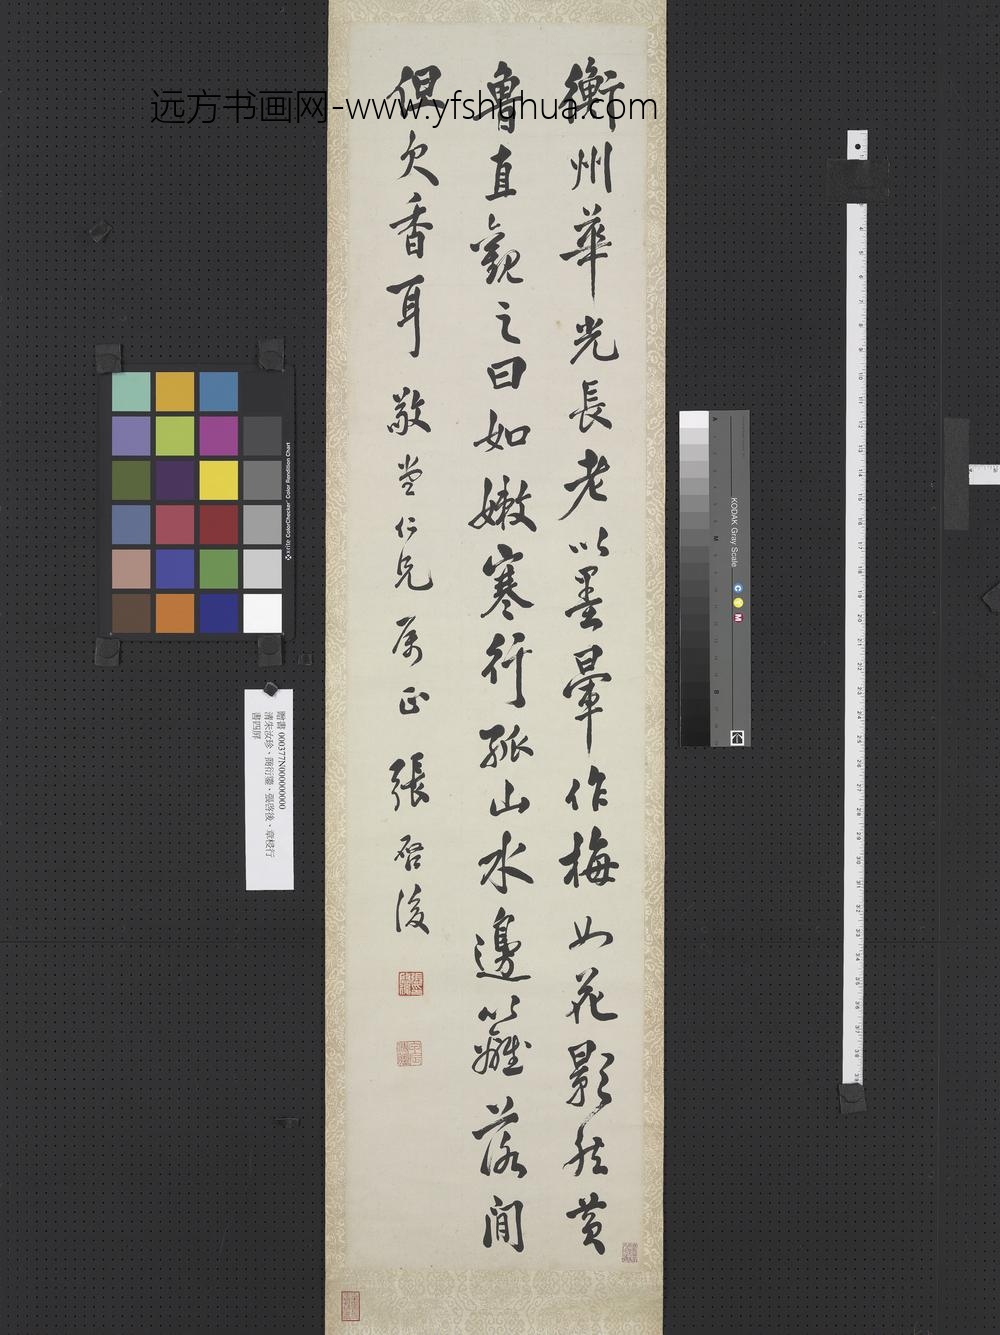 远方书画网-www.yfshuhua.com
衡州華光長老以墨暈作梅如花影然黃
魯直觀之曰如嫩寒行孤山水邊籬落間
但欠香耳
敬堂仁兄屬正 張啓後
贈書 000377N000000000
清朱汝珍、商衍鎏、張啓後、章梫行
書四屏
x-rite ColorChecker Color Rendition Chart
KODAK Gray Scale
C Y M
A
M
B